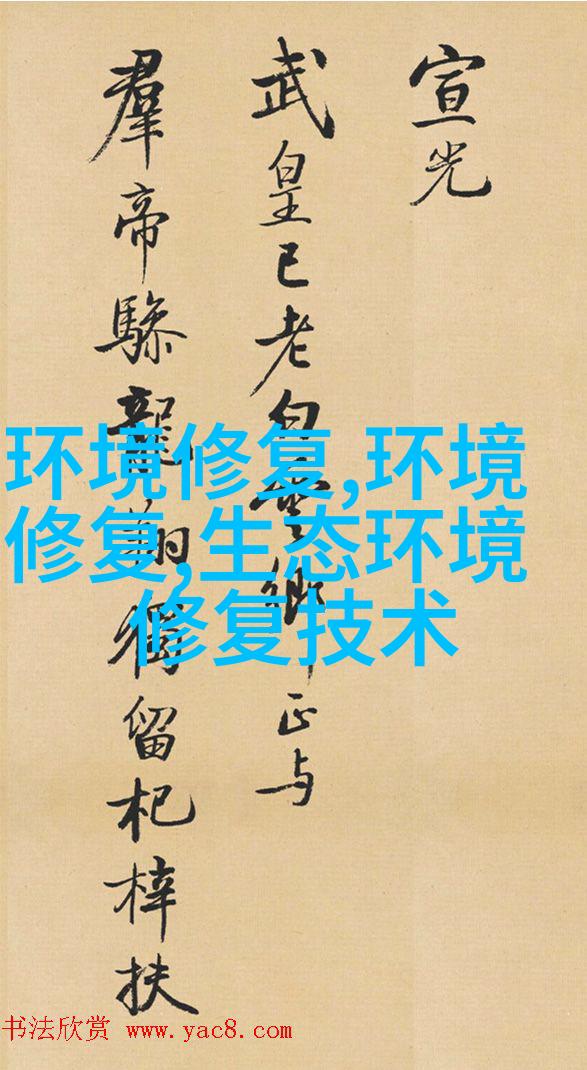 宣光
武皇已老白雲鄉正与
羣帝驂龍翔獨留杞梓扶
环境修复,环境
修复,生态环境
修复技术
书法欣赏 www.yac8.com